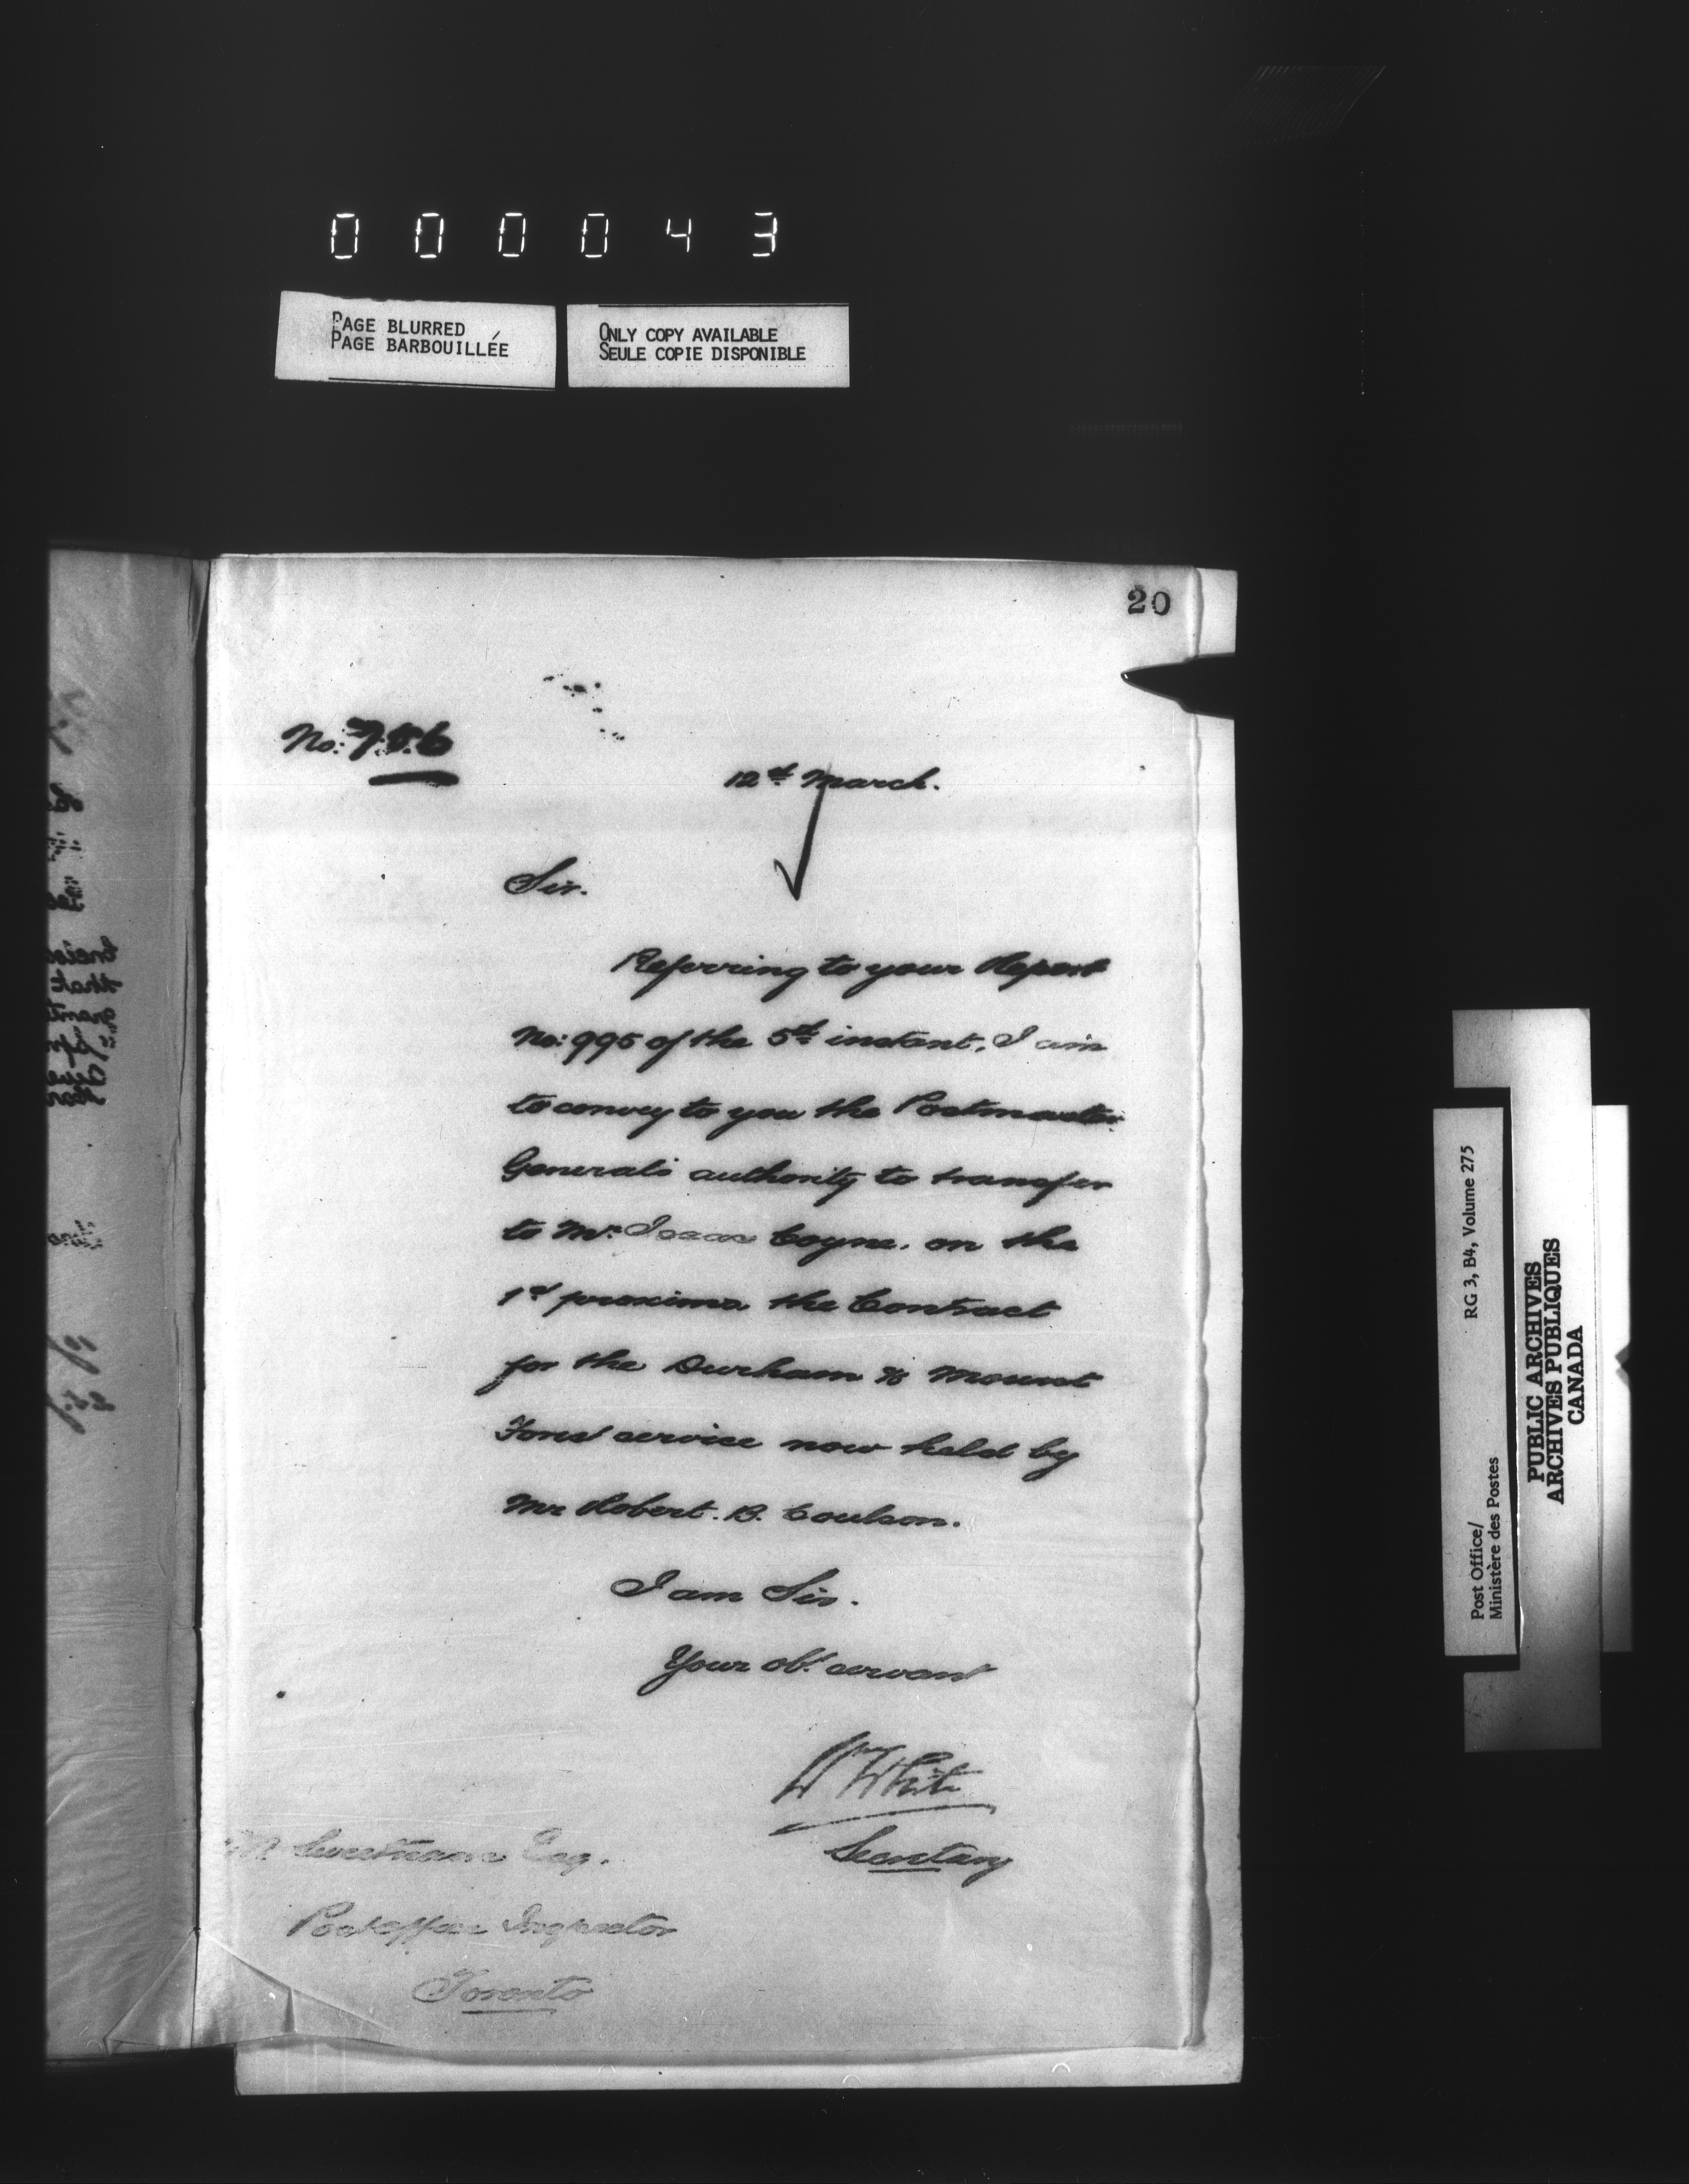 000043
PAGE BLURRED
PAGE BARBOUILLÉE
ONLY COPY AVAILABLE
SEULE COPIE DISPONIBLE
20
No: 756
12th March.
Sir.
Referring to your Report
No: 995 of the 5th instant, I am
to convey to you the Postmaster
General's authority to transfer
to Mr. Isaac Coyne, on the
1st proximo the Contract
for the Durham & Mount
Forest service now held by
Mr Robert. B. Coulson.
I am Sir.
Your obt servant
W White
Secretary
M Sweetnam Esq.
Post office Inspector
Toronto
Post Office/
Ministère des Postes
RG 3, B4, Volume 275
PUBLIC ARCHIVES
ARCHIVES PUBLIQUES
CANADA